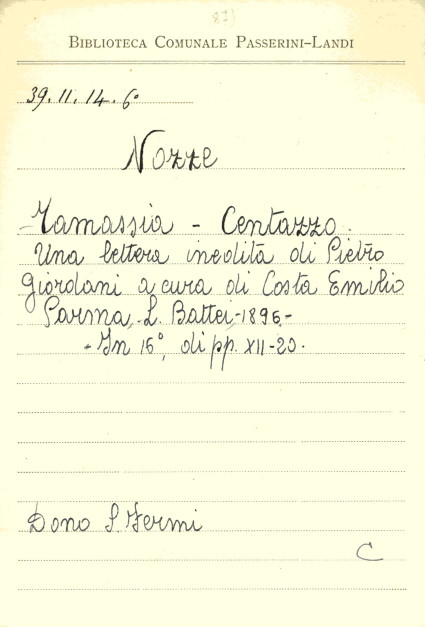 BIBLIOTECA COMUNALE PASSERINI-LANDI
39.II.14.6°
Nozze
Tamassia - Centazzo.
Una lettera inedita di Pietro
Giordani a cura di Costa Emilio
Parma, L. Battei - 1896.-
- In 16°, di pp. XII-20.
Dono S. Fermi
C